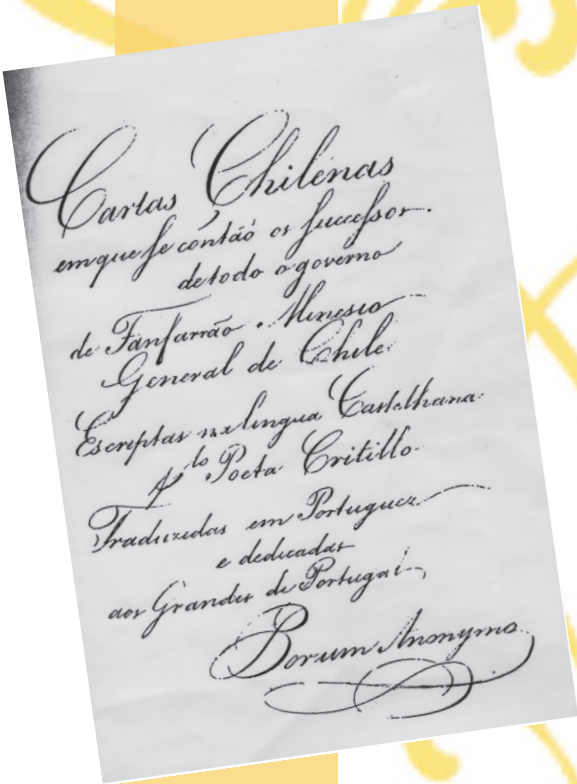 Cartas Chilenas
em que se contaõ os successos
de todo o governo
de Fanfarraõ Minesio
General de Chile.
Escreptas na lingua Castelhana
p.lo Poeta Critillo
Traduzidas em Portuguez
e dedicadas
aos Grandes de Portugal
Por um Anonymo